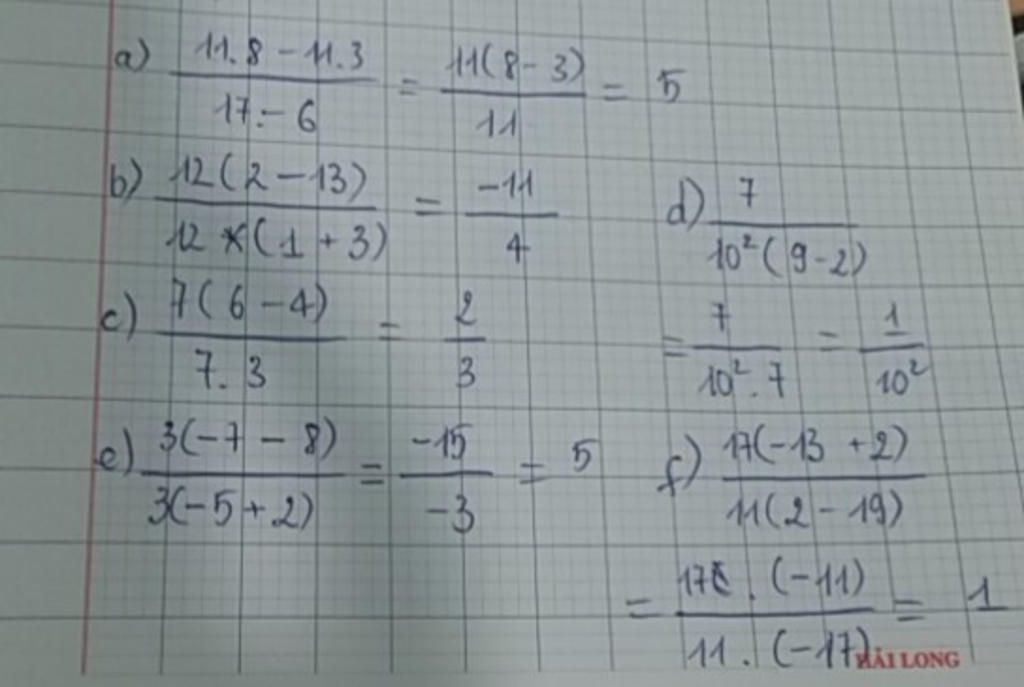 a) (11.8 - 11.3)/(17 - 6) = 11(8 - 3)/11 = 5
b) 12(2 - 13)/12(1 + 3) = -11/4
c) 7(6 - 4)/7.3 = 2/3
d) 7/10²(9 - 2)
= 7/10².7 = 1/10²
e) 3(-7 - 8)/3(-5 + 2) = -15/-3 = 5
f) 17(-13 + 2)/11(2 - 19)
= 17.(-11)/11.(-17) = 1
HẢI LONG